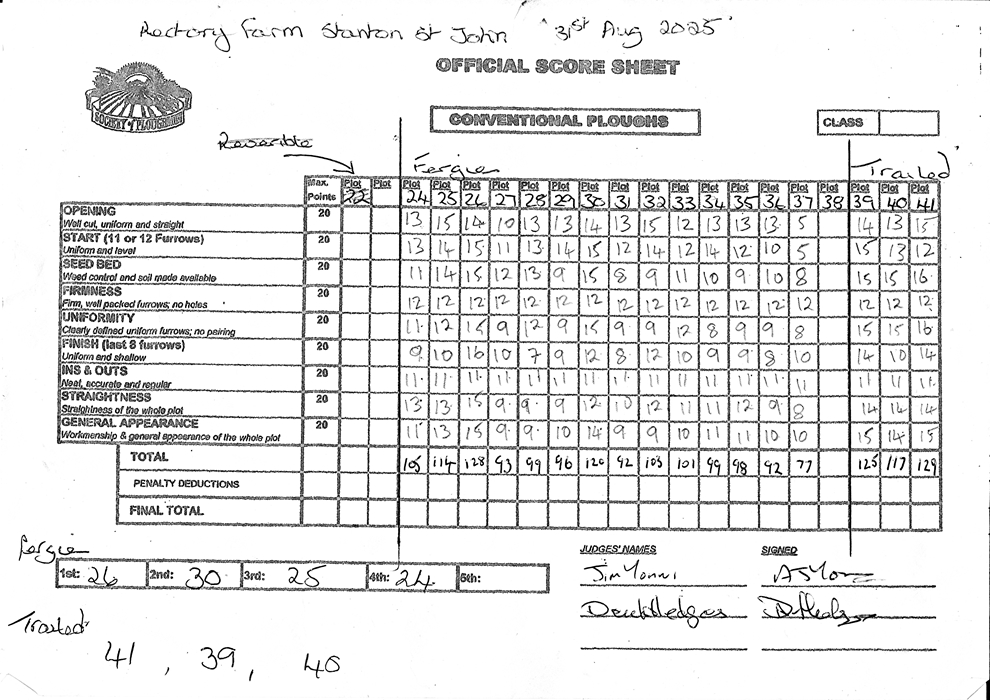 Rectory Farm Stanton St John '31st Aug 2025'
OFFICIAL SCORE SHEET
SOCIETY of PLOUGHMEN
CONVENTIONAL PLOUGHS
CLASS
Reversible
Fergie
Trailed
Max. Points Plot 22 Plot Plot 24 Plot 25 Plot 26 Plot 27 Plot 28 Plot 29 Plot 30 Plot 31 Plot 32 Plot 33 Plot 34 Plot 35 Plot 36 Plot 37 Plot 38 Plot 39 Plot 40 Plot 41
OPENING 20 13 15 14 10 13 13 14 13 15 12 13 13 13 5 14 13 15
Well cut, uniform and straight
START (11 or 12 Furrows) 20 13 14 15 11 13 14 15 12 14 12 14 12 10 5 15 13 12
Uniform and level
SEED BED 20 11 14 15 12 13 9 15 8 9 11 10 9 10 8 15 15 16
Weed control and soil made available
FIRMNESS 20 12 12 12 12 12 12 12 12 12 12 12 12 12 12 12 12 12
Firm, well packed furrows; no holes
UNIFORMITY 20 11 12 15 9 12 9 15 9 9 12 8 9 9 8 15 15 16
Clearly defined uniform furrows; no pairing
FINISH (last 8 furrows) 20 9 10 16 10 7 9 12 8 12 10 9 9 8 10 14 10 14
Uniform and shallow
INS & OUTS 20 11 11 11 11 11 11 11 11 11 11 11 11 11 11 11 11 11
Neat, accurate and regular
STRAIGHTNESS 20 13 13 15 9 9 9 12 10 12 11 11 12 9 8 14 14 14
Straightness of the whole plot
GENERAL APPEARANCE 20 11 13 15 9 9 10 14 9 9 10 11 11 10 10 15 14 15
Workmenship & general appearance of the whole plot
TOTAL 105 114 128 93 99 96 120 92 103 101 99 98 92 77 125 117 129
PENALTY DEDUCTIONS
FINAL TOTAL
Fergie
1st: 26 2nd: 30 3rd: 25 4th: 24 5th:
JUDGES' NAMES SIGNED
Trailed
41, 39, 40